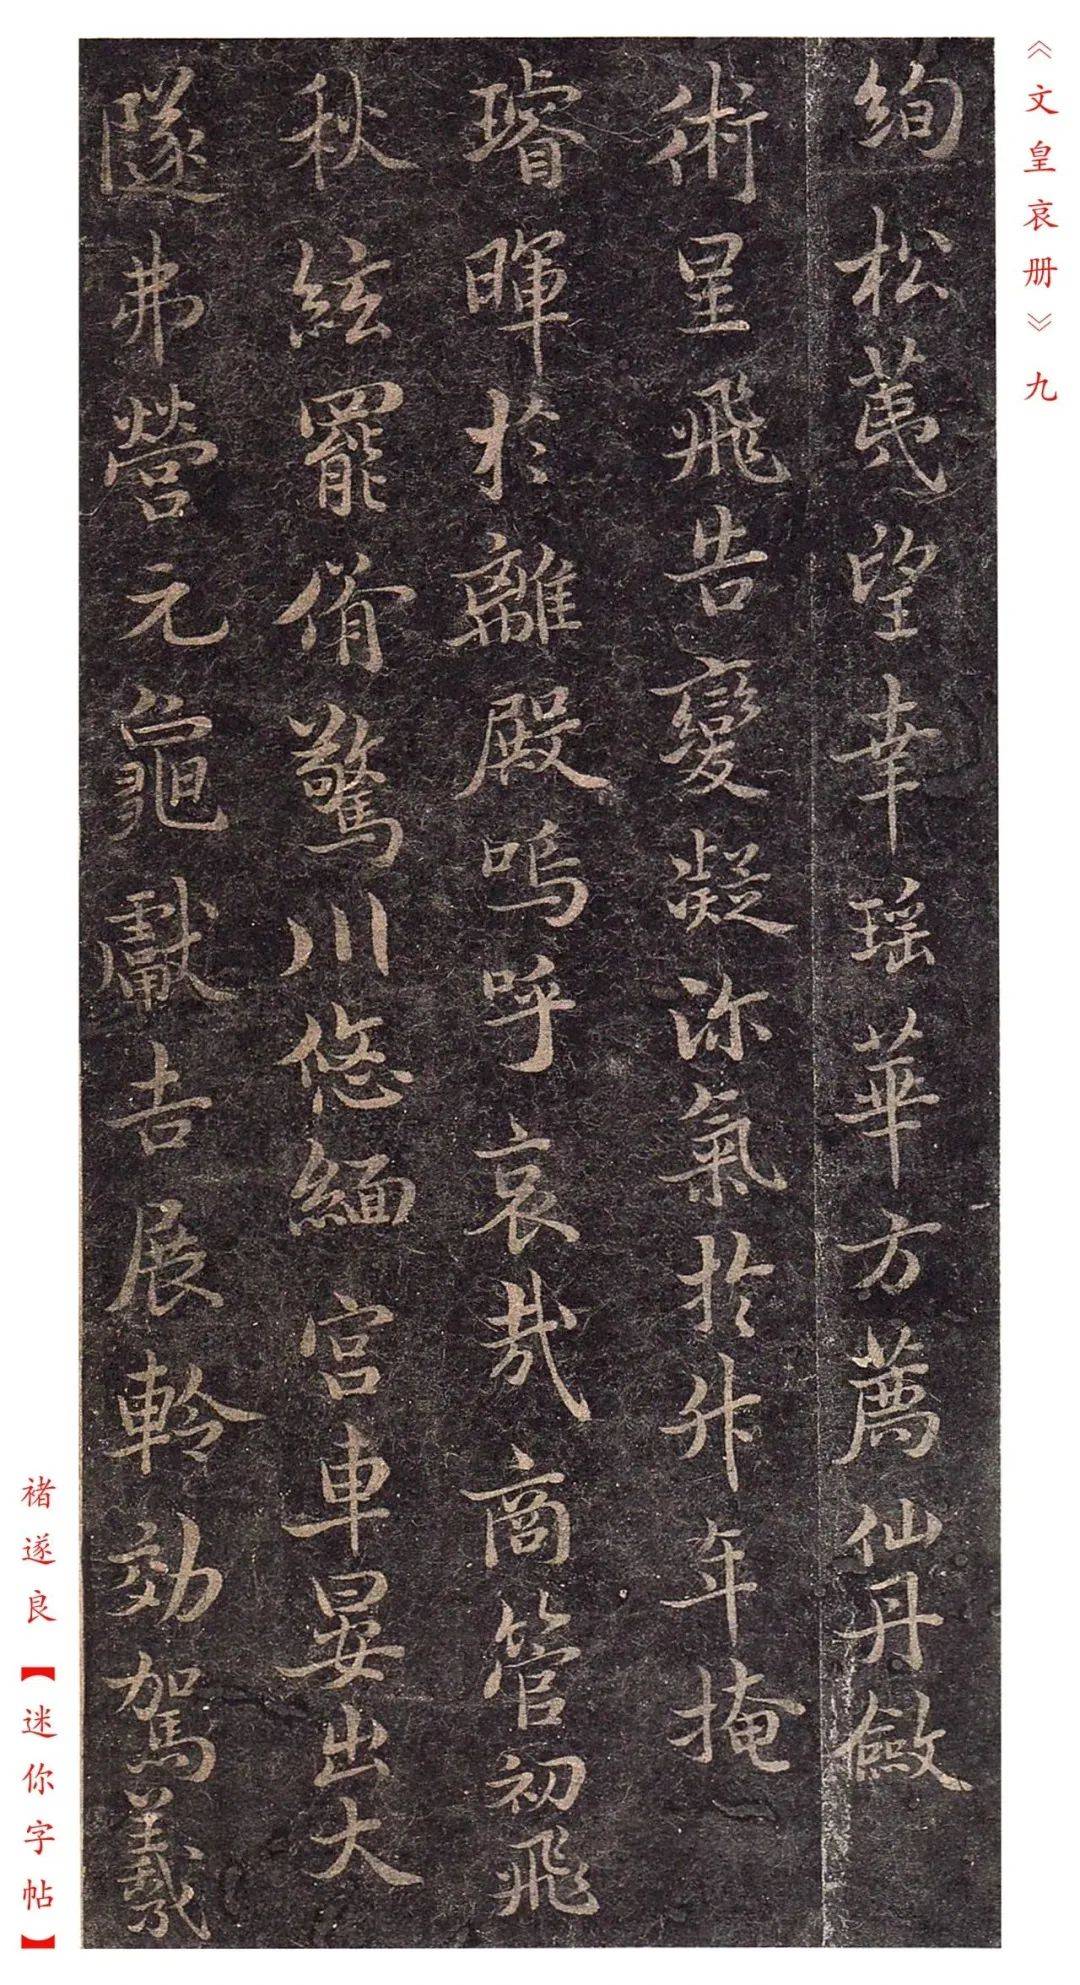 《文皇哀册》九
絢松荑望幸瑶華方薦仙丹斂
術星飛告變凝沴氣於升年掩
璿暉於離殿嗚呼哀哉商管初飛
秋絃罷佾驚川悠緬宮車晏出大
隧弗營元龜獻吉展軨効駕羲
褚遂良【迷你字帖】